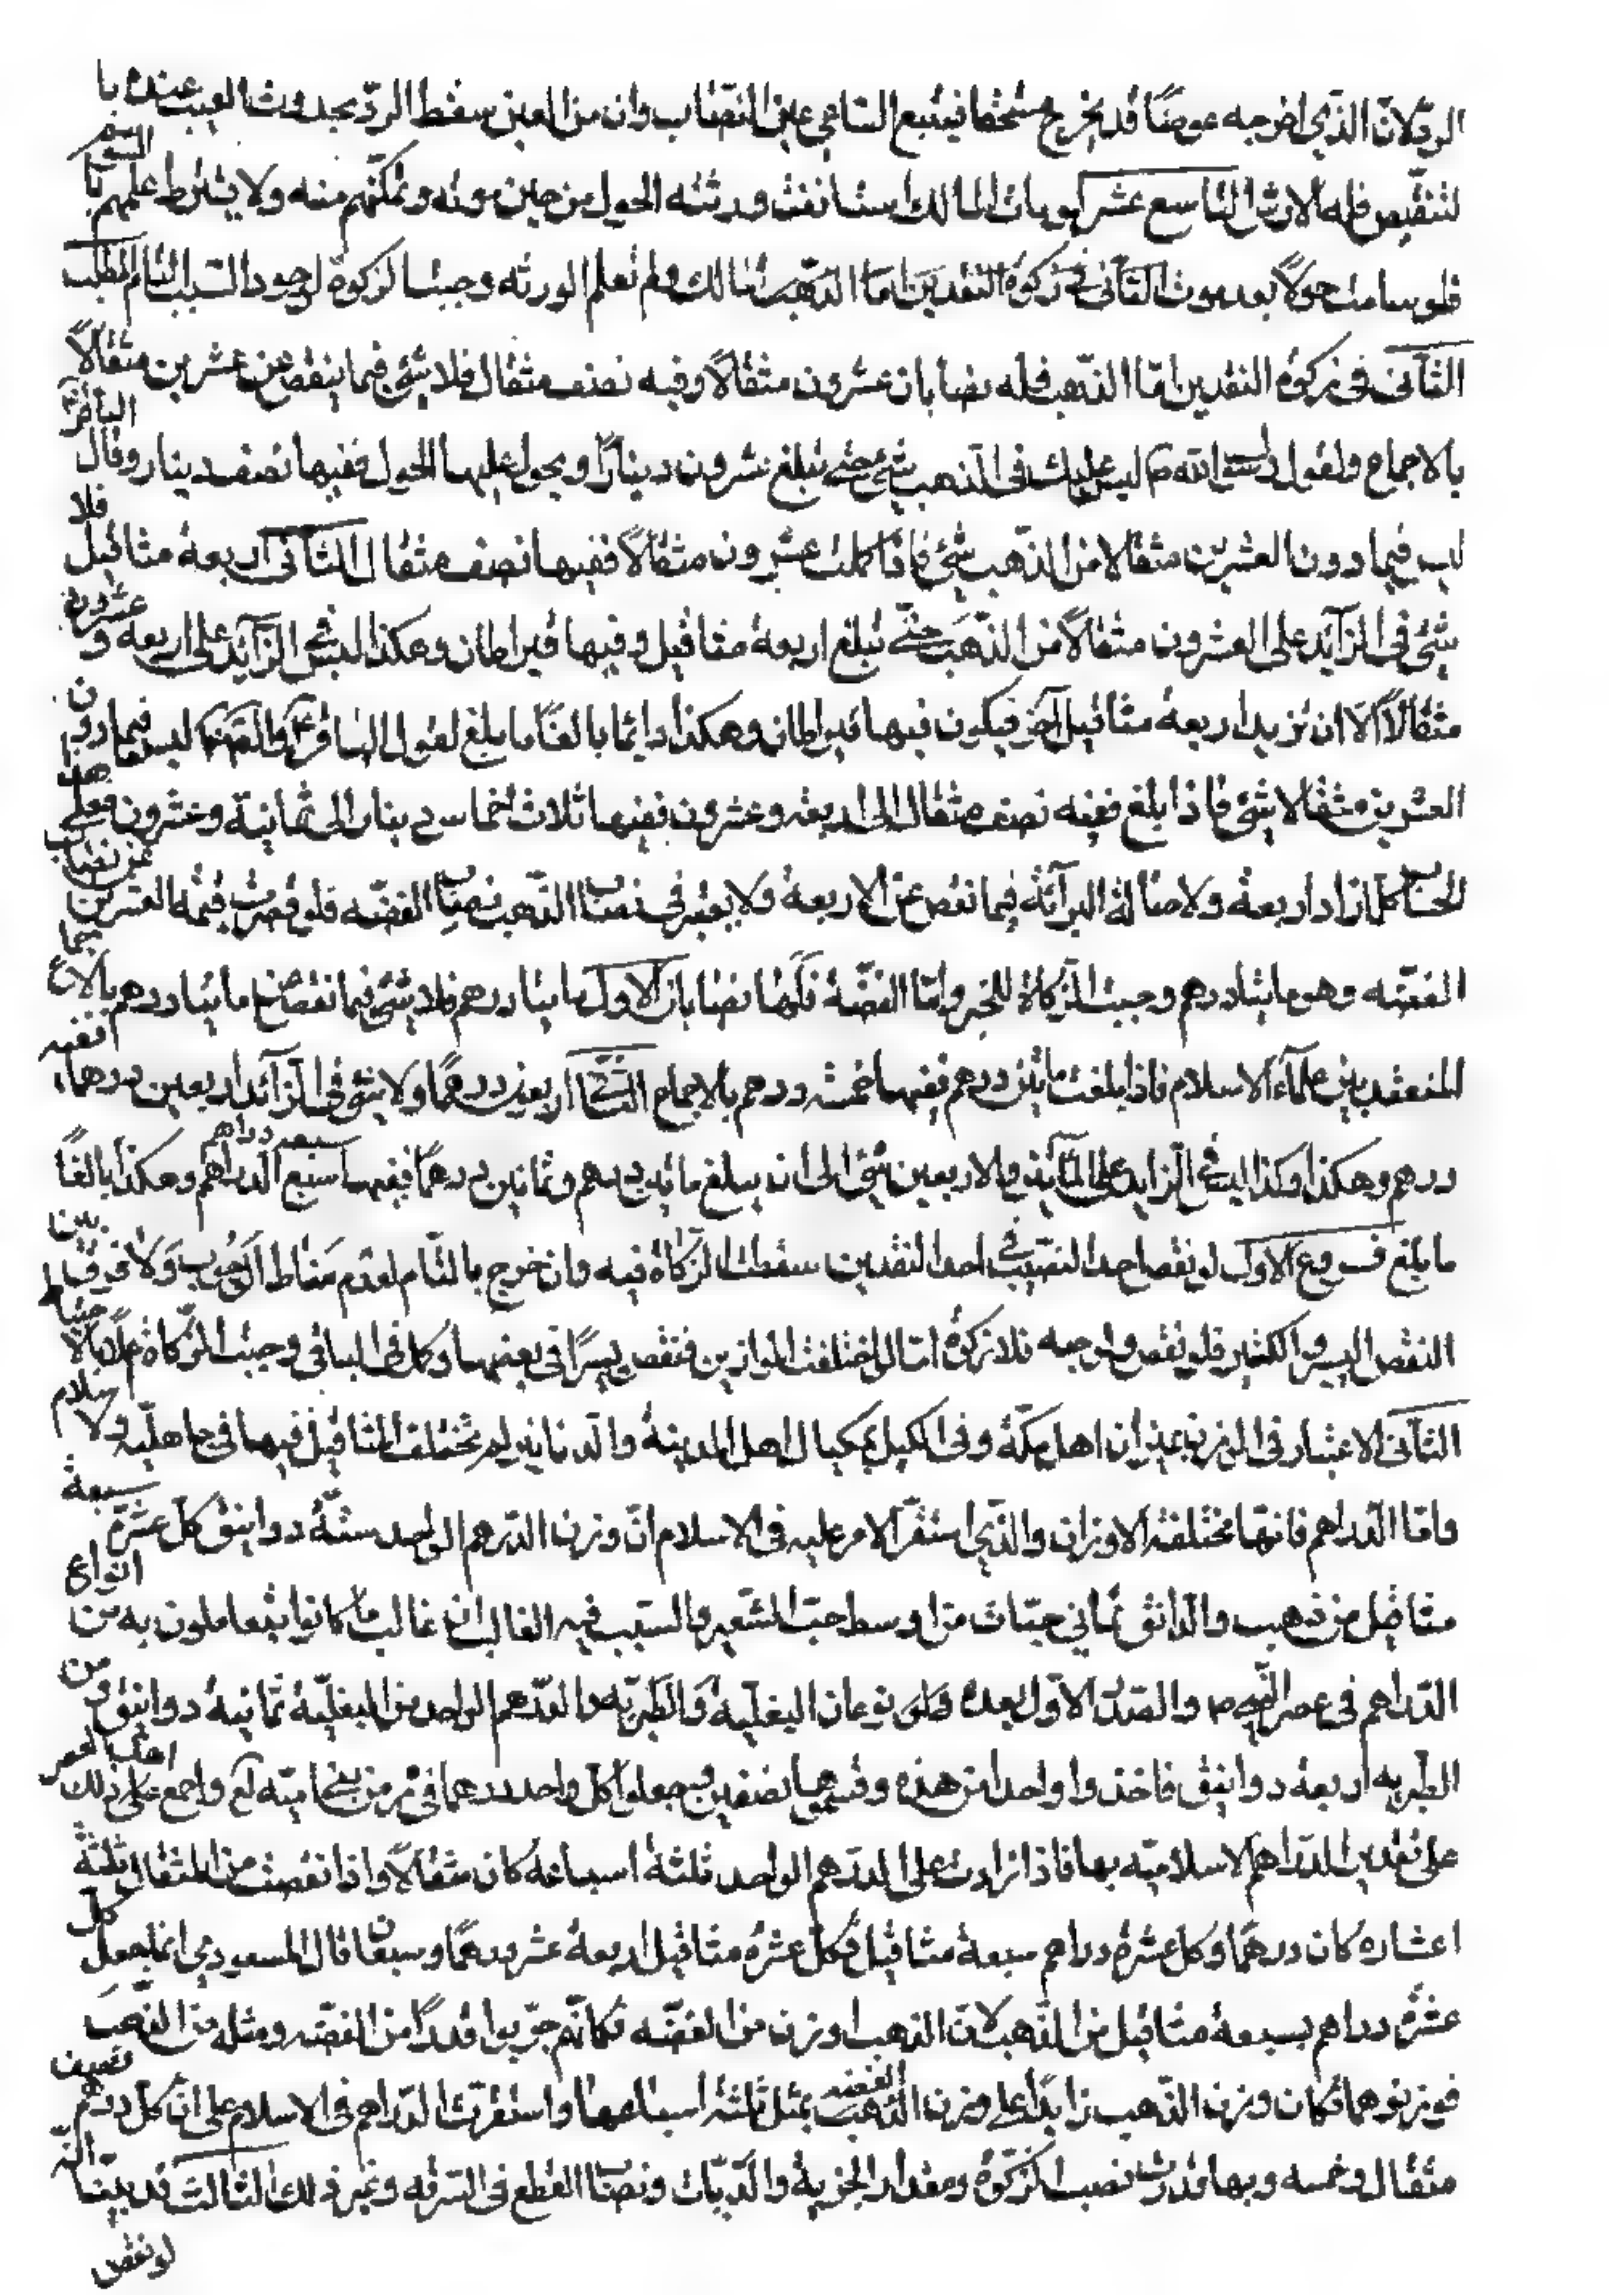 الرد لان الذي اخرجه عوضًا قد يخرج مستحقا فيتبع الساعي عين النصاب وان من العين سقط الرد بحدوث العيب عنده با
لتنقيص فله الارش التاسع عشر لو مات المالك استانفت ورثته الحول من حين موته وتمكنهم منه ولا يشترط علمهم با السوم
فلو سامت حولًا بعد موت المالك ولم تعلم الورثه وجبت الزكوة لوجود السبب التام المطلب
الثاني في زكوة النقدين امّا الذهب فله نصابان عشرون مثقالًا وفيه نصف مثقال فلا شئ فيما ينقص عن عشرين مثقالًا
بالاجماع ولقول رسول الله ص ليس عليك في الذهب شئ حتى تبلغ عشرون دينارًا ويحول عليها الحول ففيها نصف دينار وقال الباقر
ليس فيما دون العشرين مثقالا من الذهب شئ فاذا كملت عشرون مثقالًا ففيها نصف مثقال الثاني اربعة مثاقيل فلا
شئ في الزايد على العشرون مثقالًا من الذهب حتى تبلغ اربعة مثاقيل وفيها قيراطان وهكذا ليس في الزآيد على اربعه و عشرون
مثقالًا الا ان تزيد اربعة مثاقيل آخر فيكون فيها قيراطان وهكذا دائما بالغًا ما بلغ لقول الباقر والصادق ليس فيما دون
العشرين مثقالا شئ فاذا بلغ ففيه نصف مثقال الى اربعه وعشرون ففيها ثلاث اخماس دينار الى ثمانية وعشرون فعلى هذا
الحساب كل ازداد اربعة ولاصالة البرآئه فيما نقص عن الاربعة ولا يعتبر في نصاب الذهب نصاب الفضه فلو قصرت قيمة العشرين عن نصاب
الفضه وهو مايتا درهم وجبت الزكاة للخبر وامّا الفضّة فلها نصابان الاول مايتا درهم فلا شئ فيما نقص عن مايتا درهم بالاجماع
المنعقد بين علماء الاسلام فاذا بلغت مايتن درهم ففيها خمسه درهم بالاجماع الثاني اربعين درهمًا ولا شئ في الزائد اربعين درهما، ففيه
درهم وهكذا وكذا ليس في الزايد على المآيتن والاربعين شئ الى ان يبلغ مائه درهم وثمانين درهمًا ففيها سبعه دراهم وهكذا بالغًا
ما بلغ فروع الاول لو نقص احد النصب احد النقدين سقطت الزكاة فيه وان خرج بالتام لعدم مناط الوجوب ولا فرق بين
النقص اليسير والكثير فلو نقص ولو حبه فلا زكوة امّا لو اختلفت الموازين فنقص يسرًا في بعضها وكمل في الباقي وجبت الزكاة
الثاني الاعتبار في الموزن بميزان اهل مكّة وفي الكيل بمكيال اهل المدينة والدنانير لم تختلف المثاقيل فيها في جاهليه ولا اسلام
وامّا الدراهم فانها مختلفة الاوزان والذي استقر الامر عليه في الاسلام انّ وزن الدرهم الواحد ستّة دوانيق كل عشرة سبعة
مثاقيل من ذهب والدانق ثماني حبّات من اوسط حبّ الشعير والسبب فيه الغالب ان غالب ما كانوا يتعاملون به من انواع
الدراهم في عصر النبي ص والصدر الاول بعده نوعان البغلية والطبريه والدرهم الواحد من البغليّة ثمانية دوانيق و من
الطبريه اربعة دوانيق فاخذوا واحدا من هذه وقسموها نصفين وجعلوا كل واحد درهما في زمن بني اميّه واجمع على ذلك اهل العصر
على تقدير الدراهم الاسلاميّه بها فاذا زادت على الدرهم الواحد ثلثة اسباعه كان مثقالًا واذا نقصت من المثقال ثلثة
اعشاره كان درهمًا وكل عشرة دراهم سبعة مثاقيل وكل عشرة مثاقيل اربعة عشر درهمًا وسبعان قال المسعودي انما جعل كل
عشرة دراهم بسبعة مثاقيل من الذهب لان الذهب اوزن من الفضّه وكانّهم جرّبوا قدرًا من الفضّه ومثله من الذهب
فوزنوهما فكان وزن الذهب زايدًا على وزن الفضه بمثل ثلثة اسباعها واستقرت الدراهم في الاسلام على ان كل درهم نصف
مثقال وخمسه وبها قدرت نصب الزكوة ومقدار الجزية والديّات ونصاب القطع في السرقه وغير ذلك الثالث قد بيّنا انّه
لو نقص